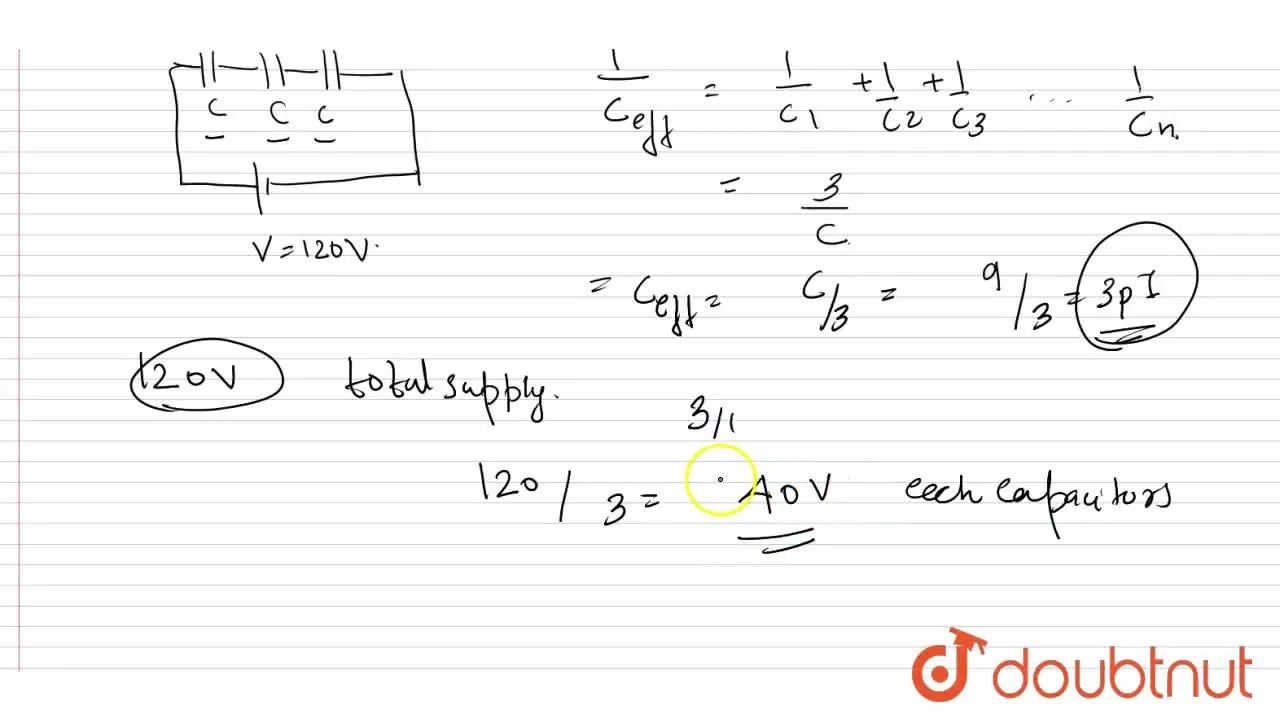 C C C
V = 120V.
1/Ceff = 1/C1 + 1/C2 + 1/C3 .... 1/Cn.
= 3/C.
= Ceff = C/3 = 9/3 = 3pF
120V total supply.
3/1
120/3 = 40V each capacitors
doubtnut